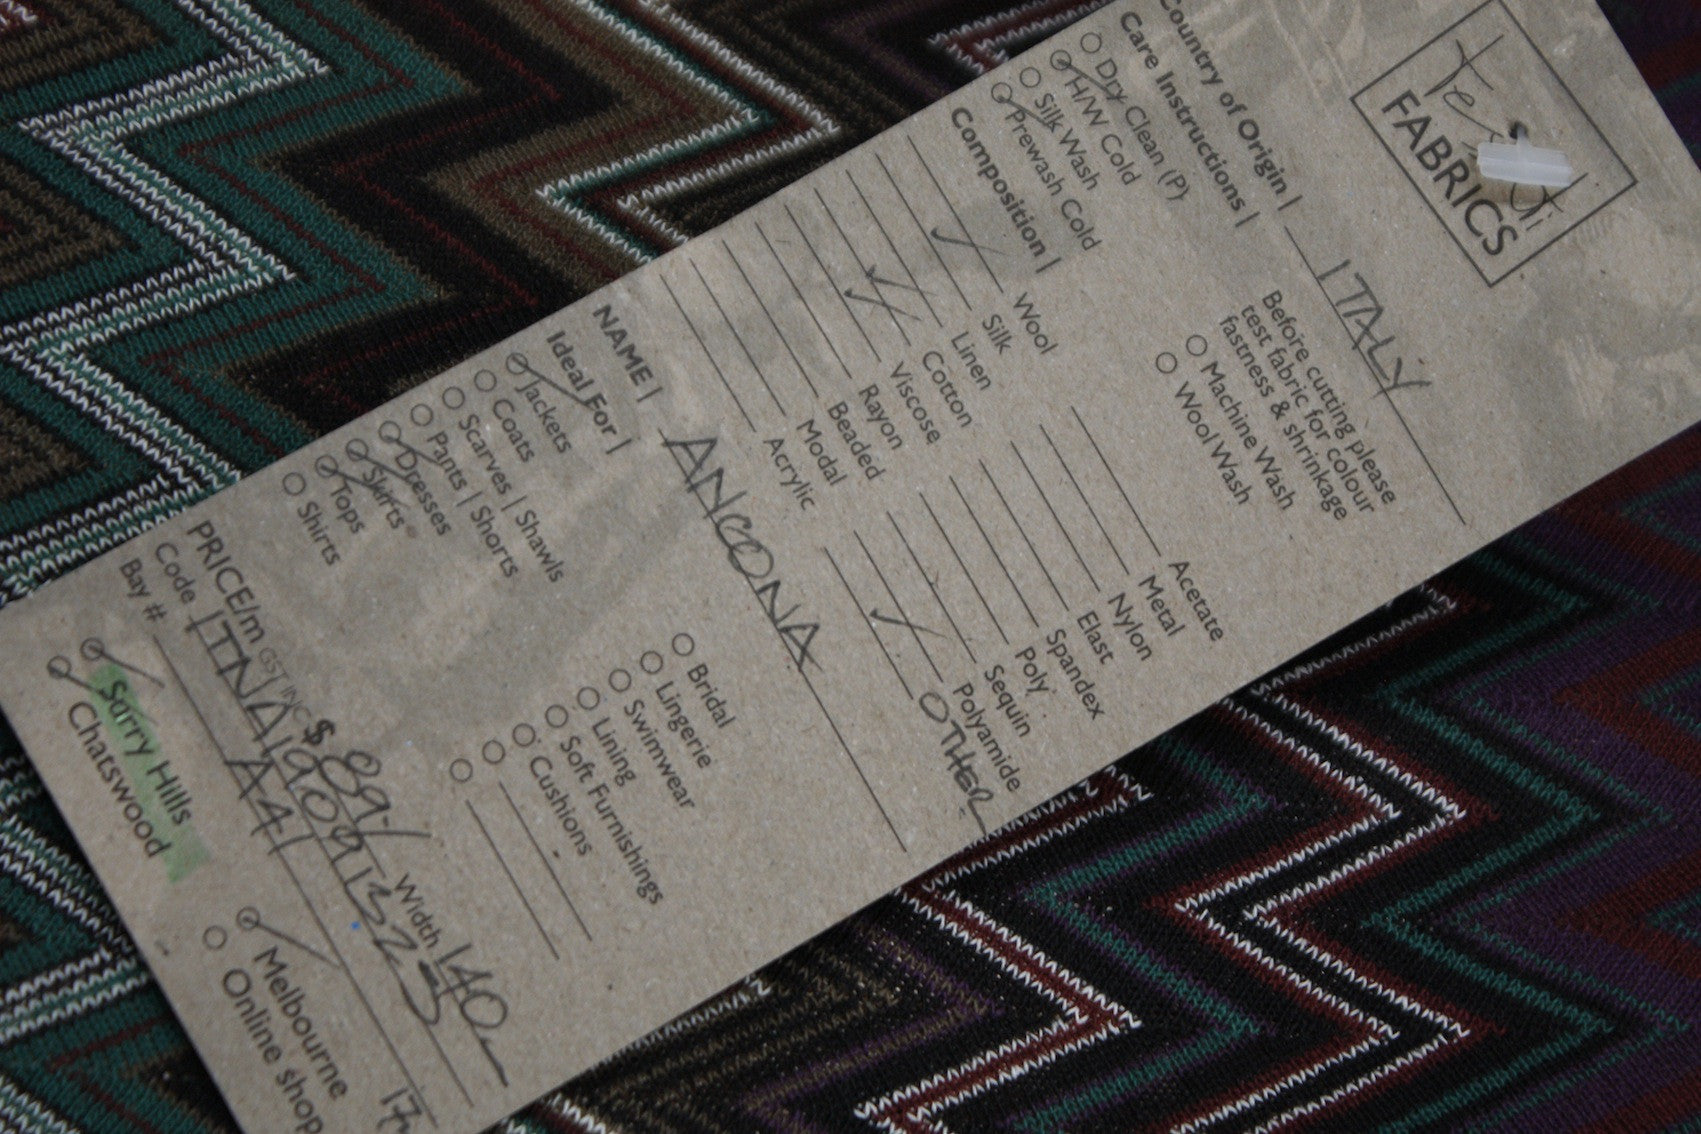 Tessuti
FABRICS
Country of Origin | ITALY
Care Instructions |
Dry Clean (P)
H/W Cold
Silk Wash
Prewash Cold
Before cutting please
test fabric for colour
fastness & shrinkage
Machine Wash
Wool Wash
Composition |
Wool
Silk
Linen
Cotton
Viscose
Rayon
Beaded
Modal
Acrylic
Acetate
Metal
Nylon
Elast
Spandex
Poly
Sequin
Polyamide
OTHER
NAME | ANCONA
Ideal For |
Jackets
Coats
Scarves | Shawls
Pants | Shorts
Dresses
Skirts
Tops
Shirts
Bridal
Lingerie
Swimwear
Lining
Soft Furnishings
Cushions
PRICE/m GST INC $89- Width 140
Code ITNA190913
Bay # A41
Surry Hills
Chatswood
Melbourne
Online shop